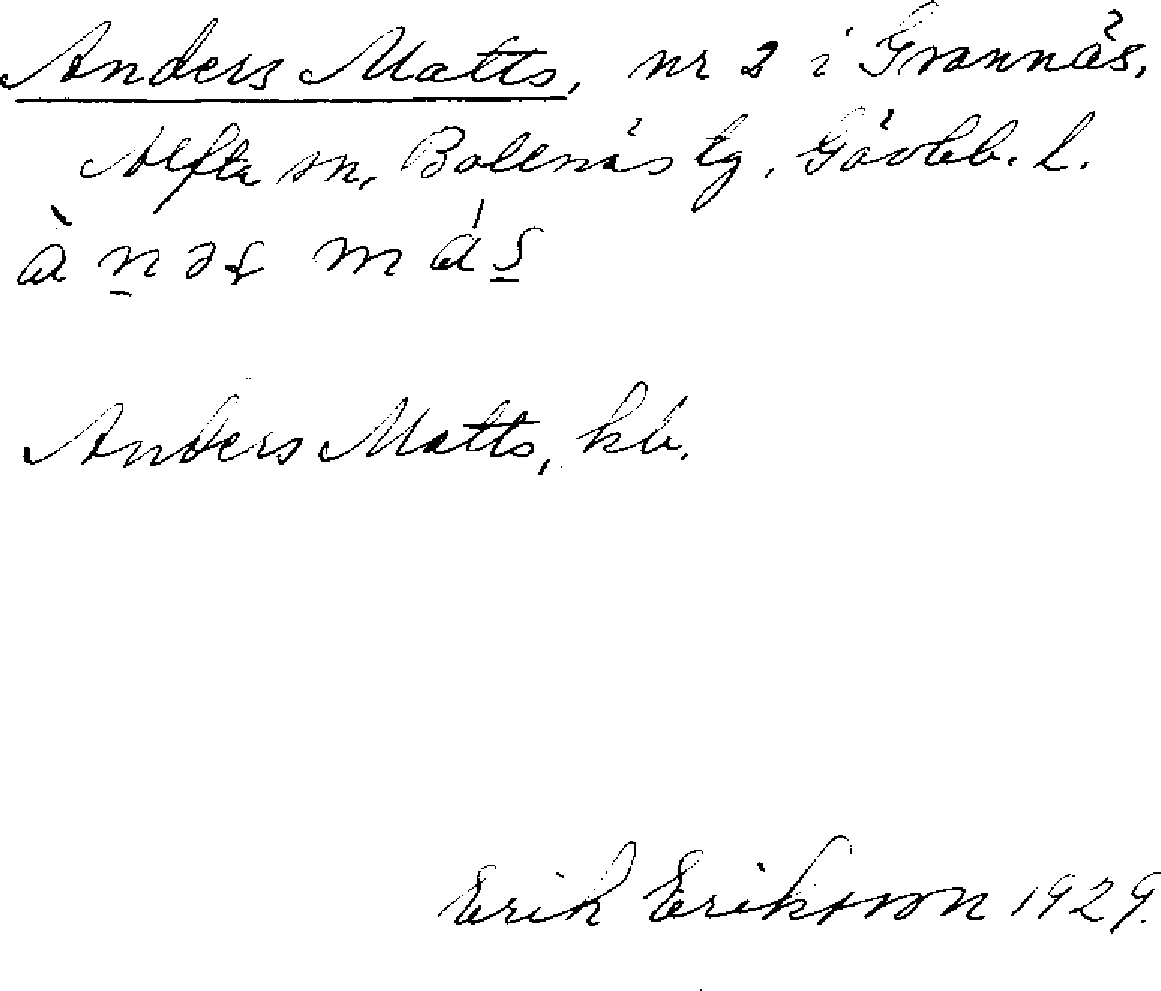 Anders Matts, nr 2 i Grannäs,
Alfta sn, Bollnäs tg, Gävleb. l.
ànəş más
Anders Matts, kb.
Erik Eriksson 1929.